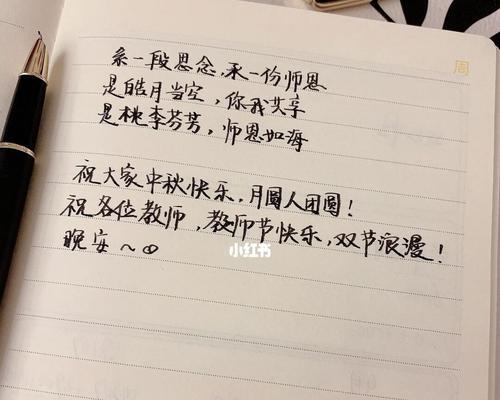 周
系一段思念,承一份师恩
是皓月当空,你我共享
是桃李芬芳,师恩如海
祝大家中秋快乐,月圆人团圆!
祝各位教师,教师节快乐,双节浪漫!
小红书
晚安~∞